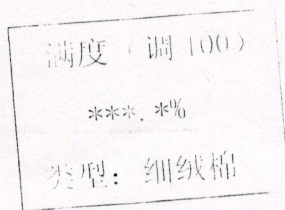 满度（调100）
***.*%
类型：细绒棉